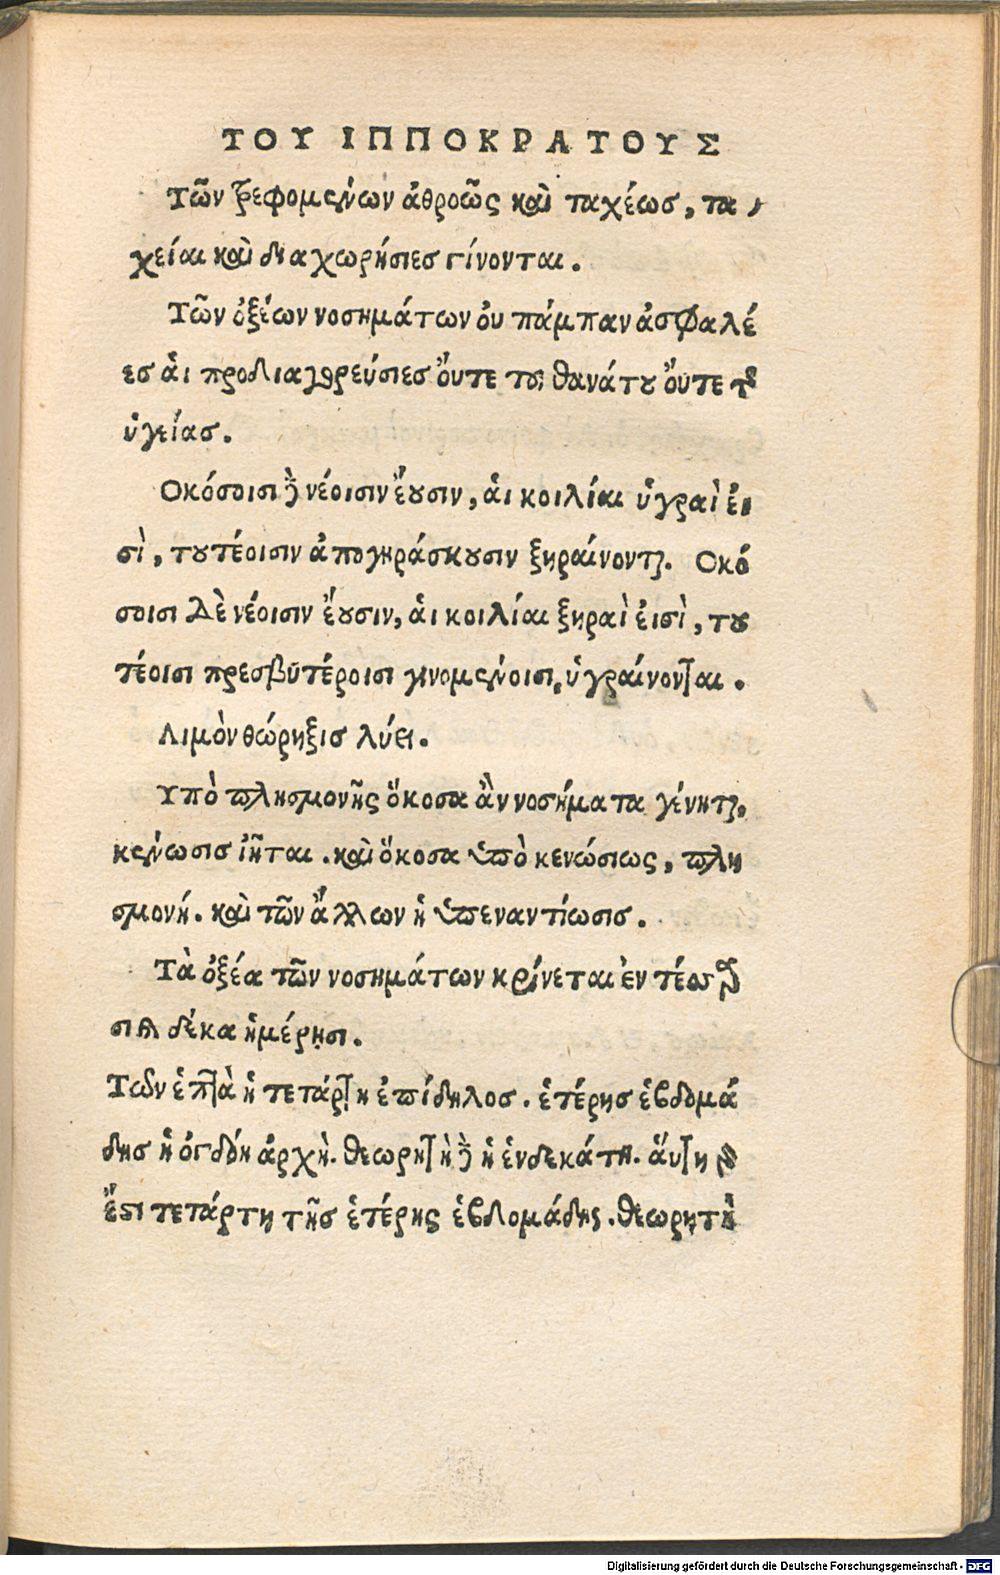 ΤΟΥ ΙΠΠΟΚΡΑΤΟΥΣ
Τῶν τρεφομένων ἀθροῶς καὶ ταχέωσ, τα
χεῖαι καὶ διαχωρήσιεσ γίνονται.
Τῶν ὀξέων νοσημάτων ὀυ πάμπαν ἀσφαλέ
εσ ἁι προδιαγορεύσιεσ ὄυτε τοῦ θανάτου ὄυτε τῆσ
ὑγείασ.
Οκόσοισι δὲ νέοισιν ἔουσιν, ἁι κοιλίαι ὑγραὶ ἐι
σὶ, τουτέοισιν ἀπογηράσκουσιν ξηραίνονται. Οκό
σοισι δὲ νέοισιν ἔουσιν, ἁι κοιλίαι ξηραὶ ἐισὶ, του
τέοισι πρεσβυτέροισι γινομένοισι, ὑγραίνονται.
Λιμὸν θώρηξισ λύει.
Υπὸ πλησμονῆς ὅκοσα ἂν νοσήματα γένηται,
κένωσισ ἰῆται. καὶ ὅκοσα ὑπὸ κενώσιως, πλη
σμονή. καὶ τῶν ἄλλων ἡ ὑπεναντίωσισ.
Τὰ ὀξέα τῶν νοσημάτων κρίνεται ἐν τέσσαρ
σι καὶ δέκα ἡμέρῃσι.
Των ἑπτὰ ἡ τετάρτη ἐπίδηλοσ. ἑτέρησ ἑβδομά
δησ ἡ ὀγδόη ἀρχὴ. θεωρητὴ δὲ ἡ ἑνδεκάτη. ἅυτη γάρ
ἔστι τετάρτη τῆσ ἑτέρης ἑβδομάδης. θεωρητὴ
Digitalisierung gefördert durch die Deutsche Forschungsgemeinschaft - DFG